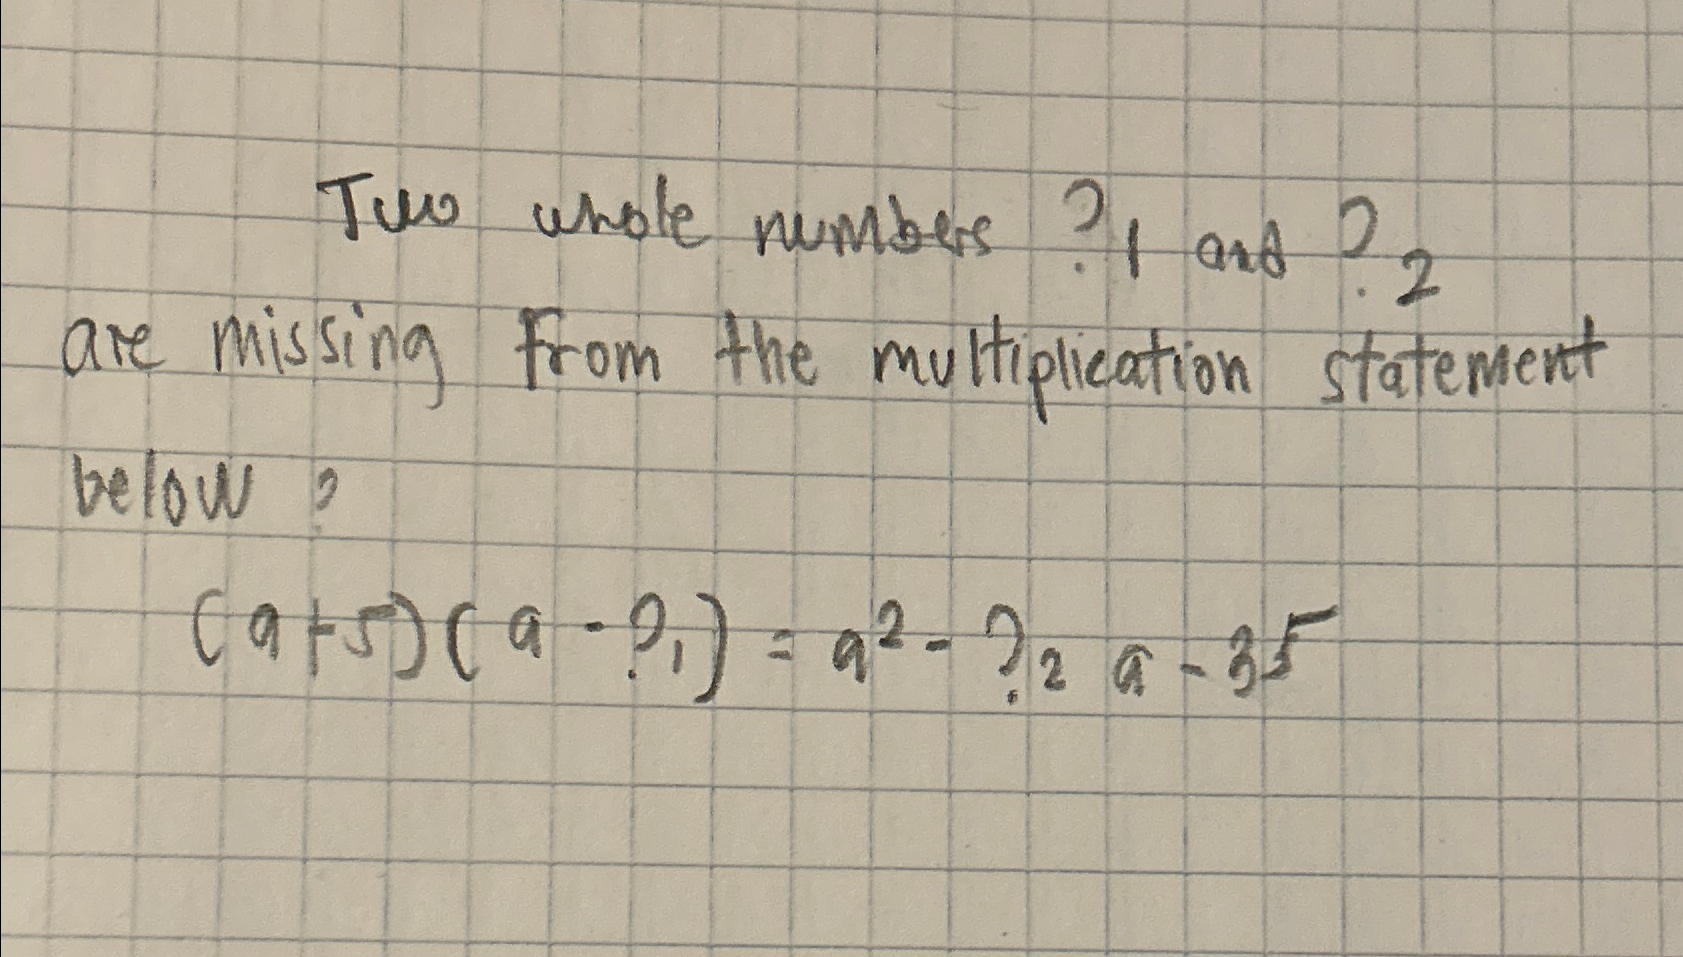 Two whole numbers ?₁ and ?₂
are missing from the multiplication statement
below ?
(a+5)(a - ?₁) = a² - ?₂ a - 35